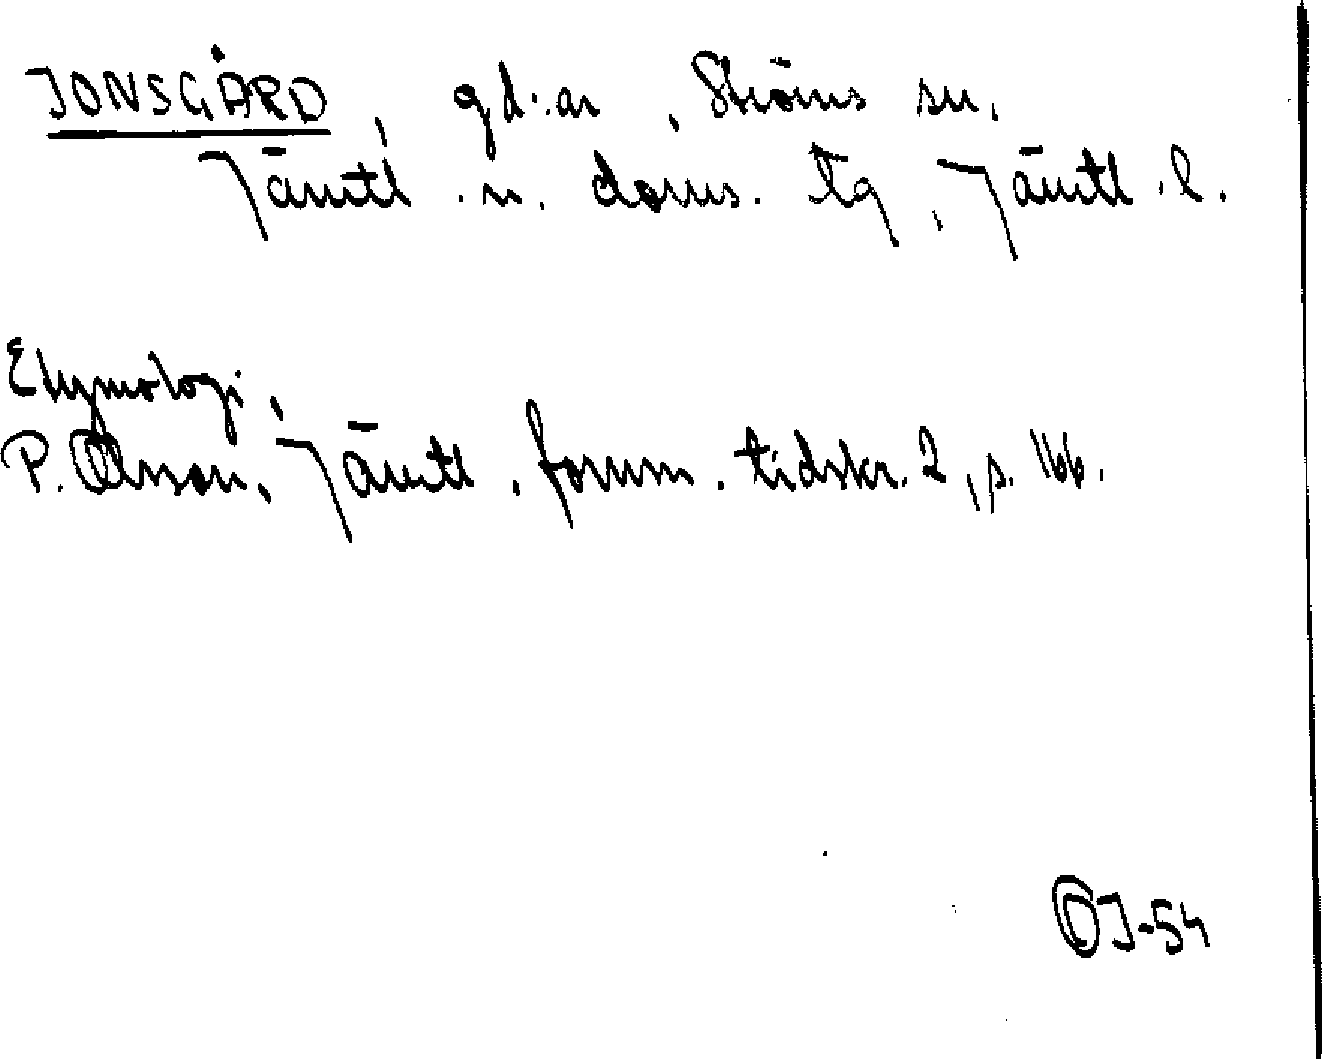 JONSGÅRD, gd.ar, Ströms sn.
Jämtl. n. doms. tg, Jämtl. l.
Etymologi,
P. Olsson, Jämtl. fornm. tidskr. 2, s. 166.
OJ-54